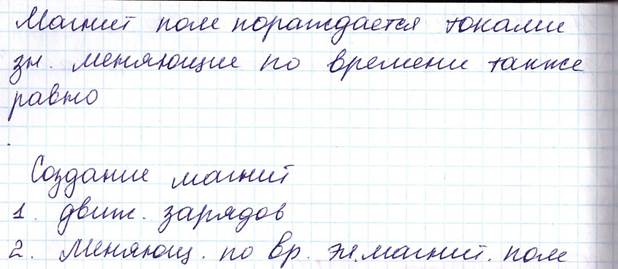 Магнит поле пораждается токами
эл. меняющие по времени также
равно
Создание магнит
1. движ. зарядов
2. Меняющ. по вр. эл.магнит. поле